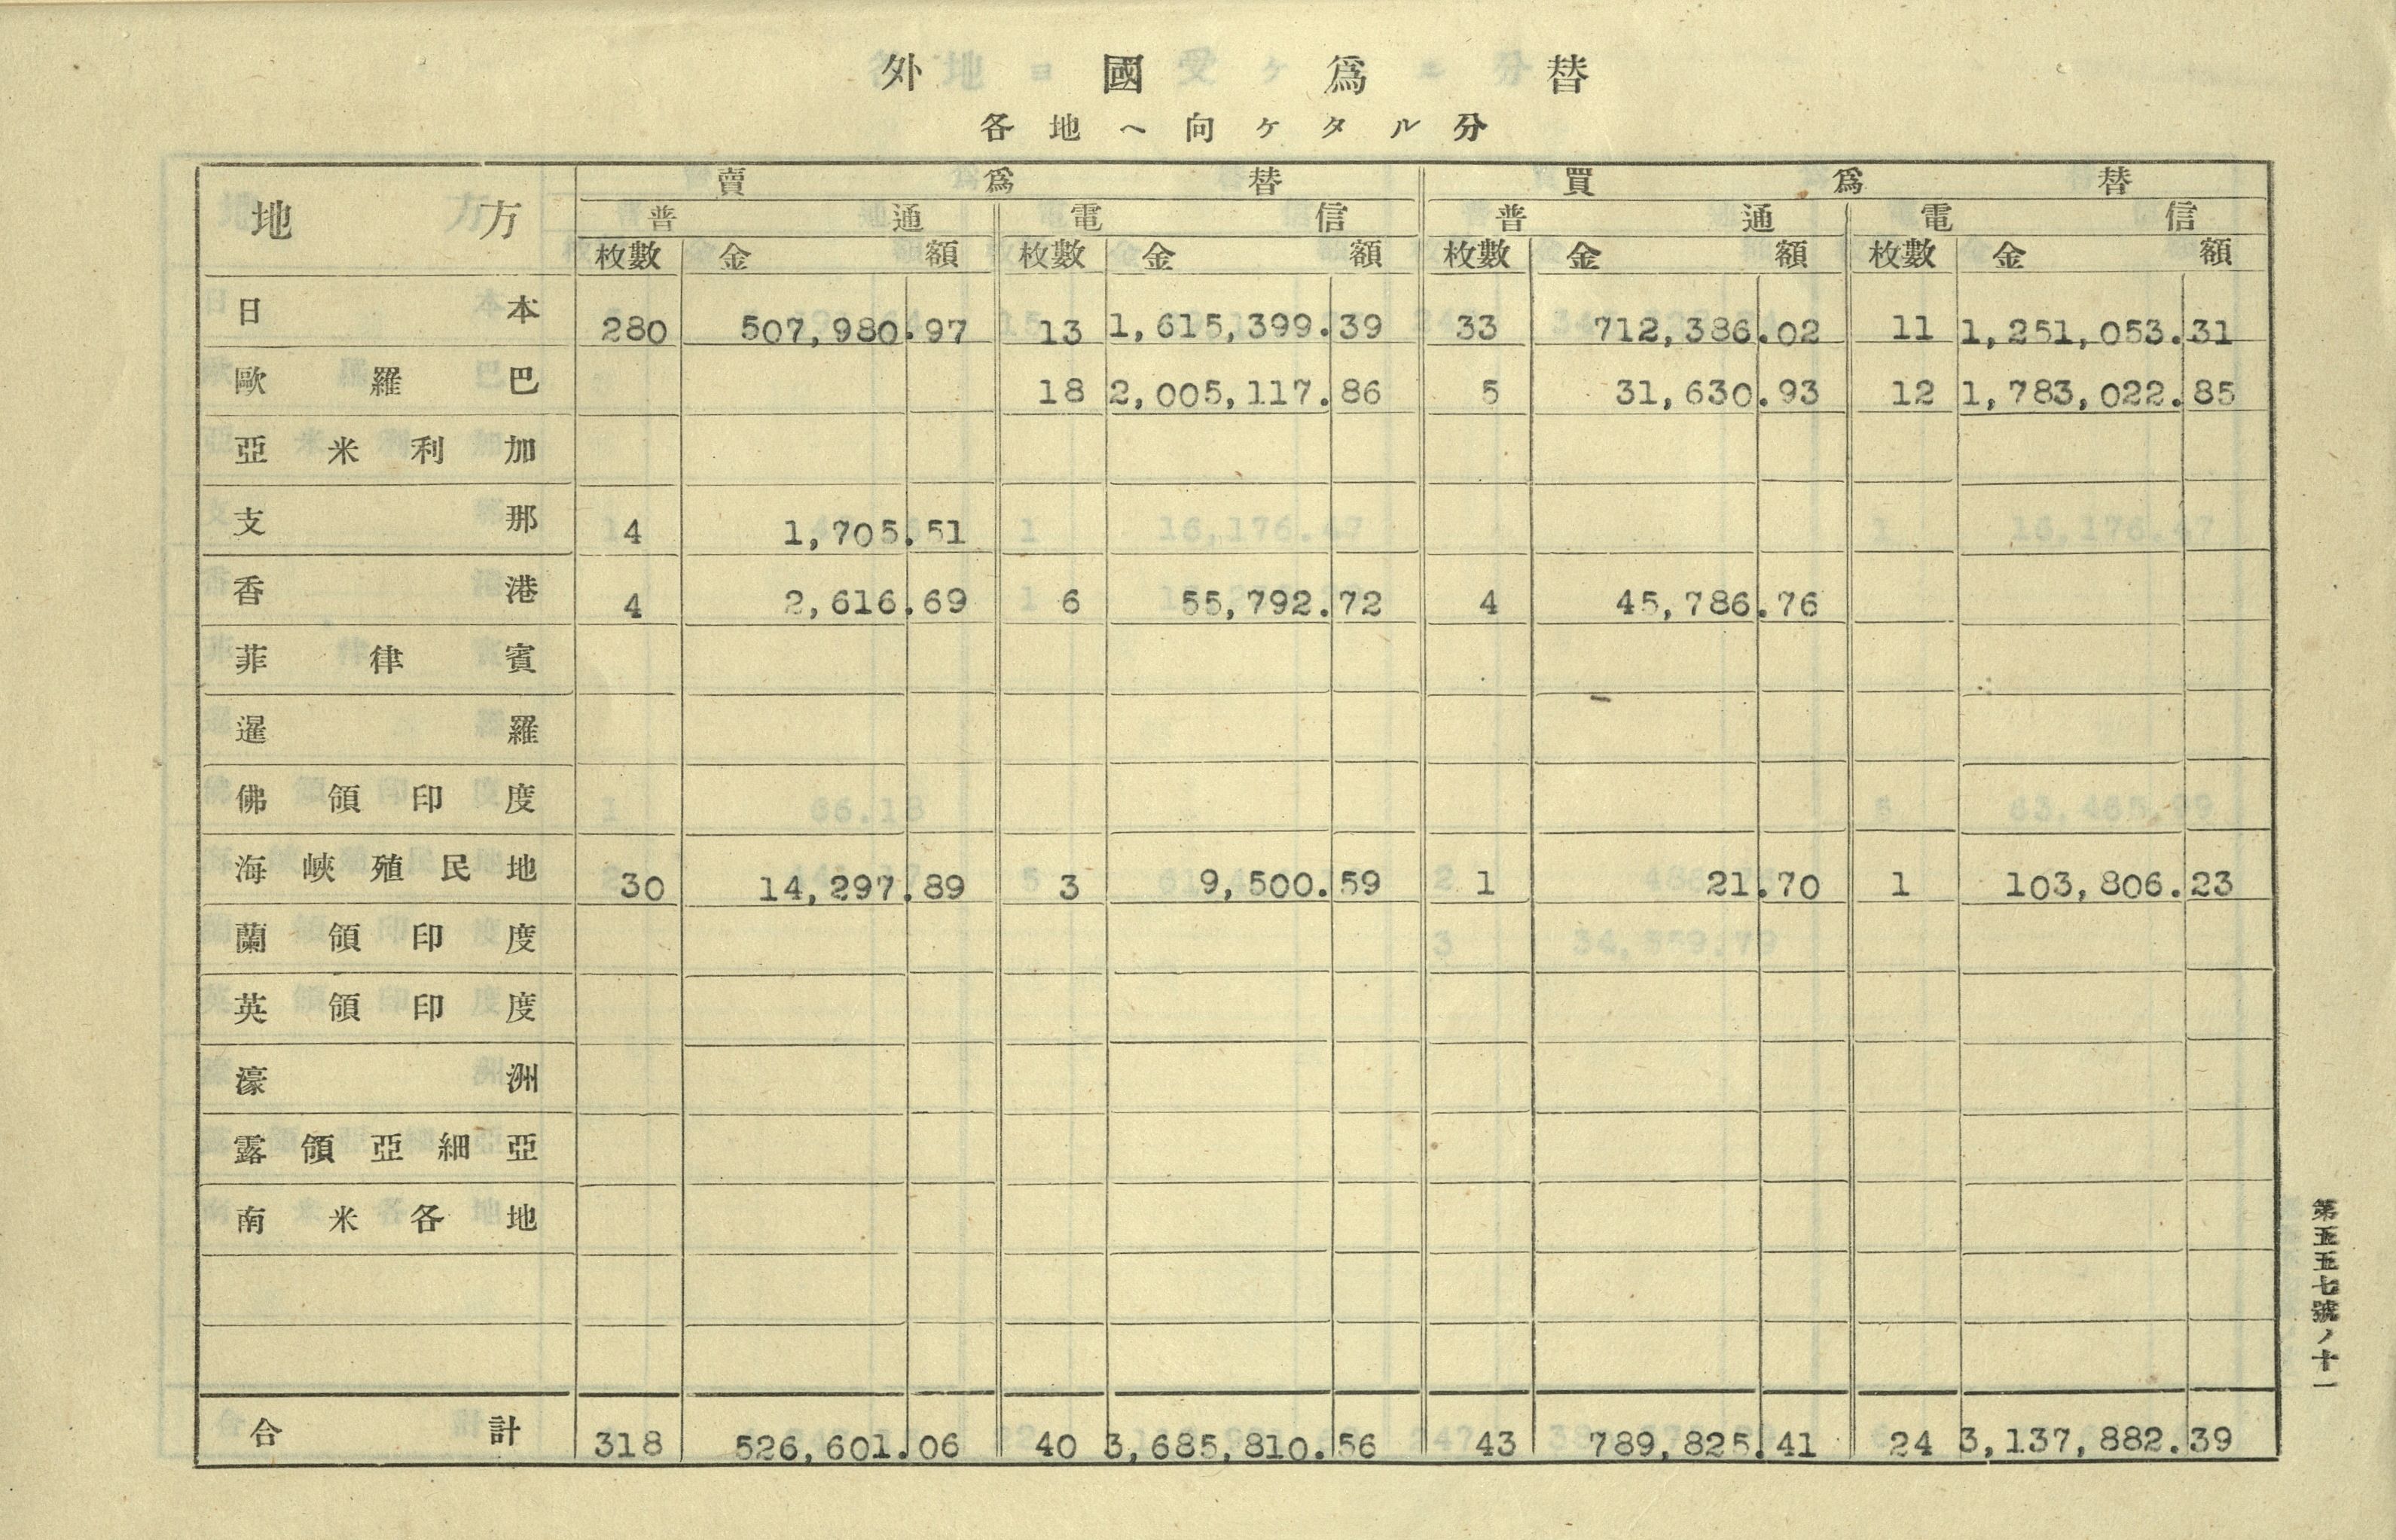 外國爲替
各地ヘ向ケタル分
地方 賣爲替 買爲替
普通 電信 普通 電信
枚數 金額 枚數 金額 枚數 金額 枚數 金額
日本 280 507,980.97 13 1,615,399.39 33 712,386.02 11 1,251,053.31
歐羅巴 18 2,005,117.86 5 31,630.93 12 1,783,022.85
亞米利加
支那 4 1,705.51
香港 4 2,616.69 6 55,792.72 4 45,786.76
菲律賓
暹羅
佛領印度
海峽殖民地 30 14,297.89 3 9,500.59 1 21.70 1 103,806.23
蘭領印度
英領印度
濠洲
露領亞細亞
南米各地
合計 318 526,601.06 40 3,685,810.56 43 789,825.41 24 3,137,882.39
第五五七號ノ十一